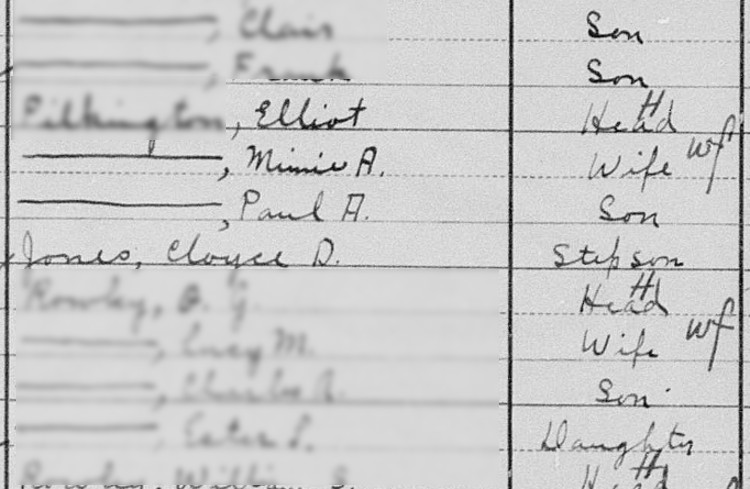 Clair Son
Son
Pilkington, Elliot Head H
Minnie A. Wife wf
Paul A. Son
Jones, Cloyce D. Stepson
Rowley, Head H
Lucy M. Wife wf
Charles Son
Daughter
Rowley, William Head H